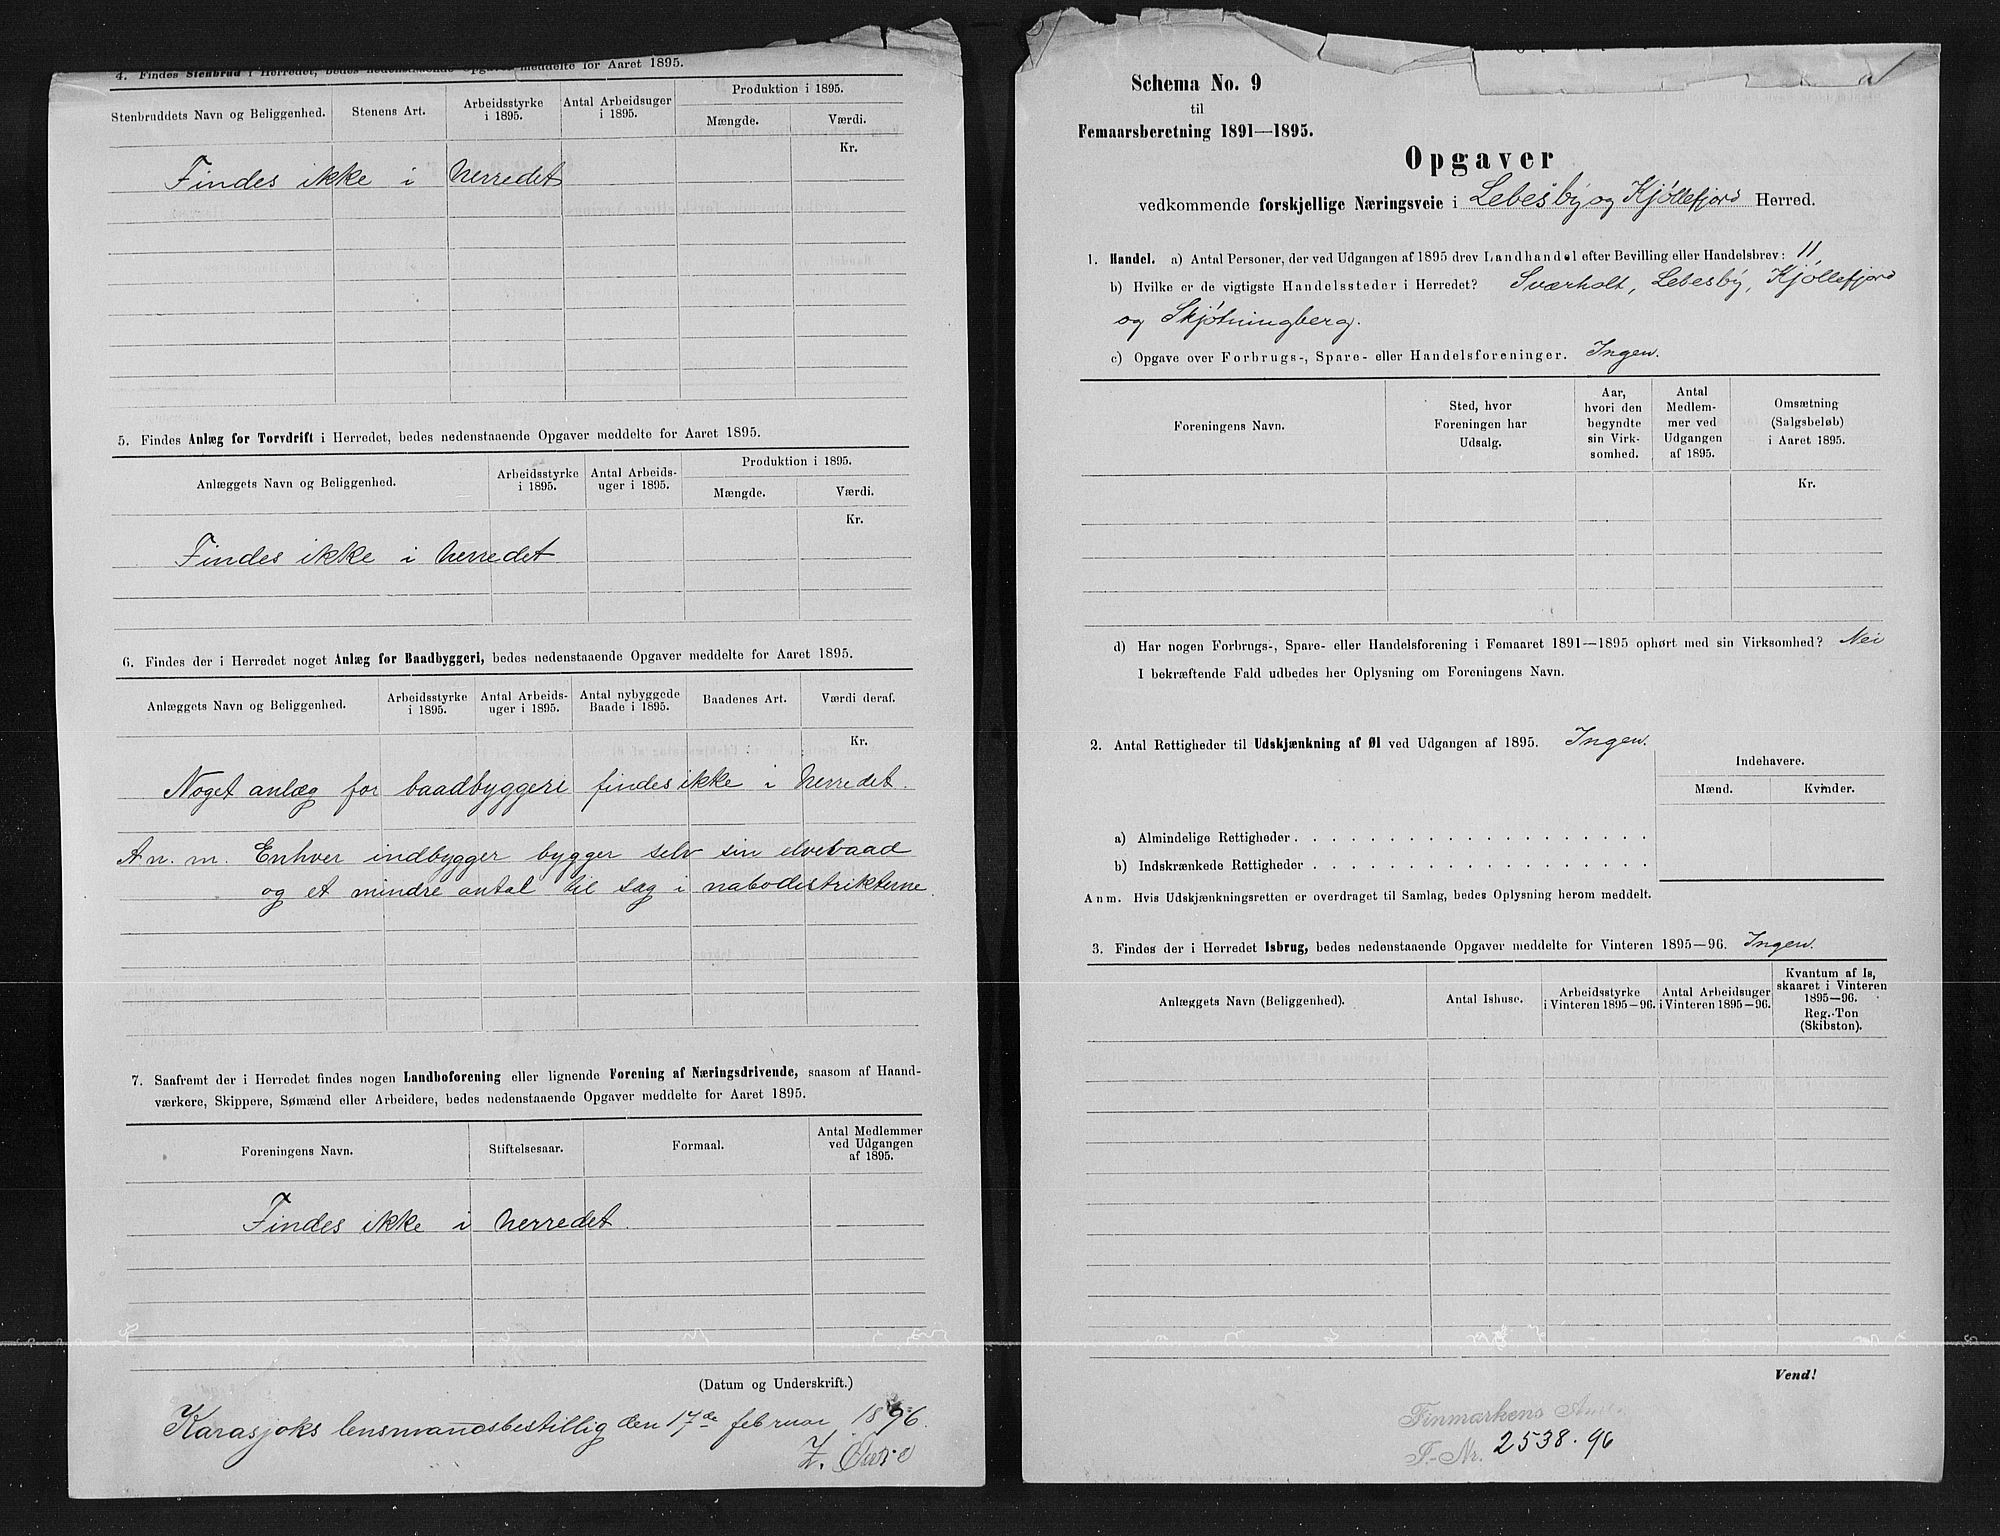 4. Findes Stenbrud i Herredet, bedes nedenstaaende Opgaver meddelte for Aaret 1895.
Stenbruddets Navn og Beliggenhed.
Stenens Art.
Arbeidsstyrke i 1895.
Antal Arbeidsuger i 1895.
Produktion i 1895.
Mængde.
Værdi.
Kr.
Findes ikke i herredet
5. Findes Anlæg for Torvdrift i Herredet, bedes nedenstaaende Opgaver meddelte for Aaret 1895.
Anlæggets Navn og Beliggenhed.
Arbeidsstyrke i 1895.
Antal Arbeids-
uger i 1895.
Produktion i 1895.
Mængde.
Værdi.
Kr.
Findes ikke i herredet
6. Findes der i Herredet noget Anlæg for Baadbyggeri, bedes nedenstaaende Opgaver meddelte for Aaret 1895.
Anlæggets Navn og Beliggenhed.
Arbeidsstyrke i 1895.
Antal Arbeids-
uger i 1895.
Antal nybyggede
Baade i 1895.
Baadenes Art.
Værdi deraf.
Kr.
Noget anlæg for baadbyggeri findes ikke i herredet.
Anm. Enhver indbygger bygger selv sin elvebaad
og et mindre antal til sag i nabodistrikterne.
7. Saafremt der i Herredet findes nogen Landboforening eller lignende Forening af Næringsdrivende, saasom af Haand-
værkere, Skippere, Sømænd eller Arbeidere, bedes nedenstaaende Opgaver meddelte for Aaret 1895.
Foreningens Navn.
Stiftelsesaar.
Formaal.
Antal Medlemmer
ved Udgangen
af 1895.
Findes ikke i herredet.
(Datum og Underskrift.)
Karasjoks lensmandsbestillig den 17de februar 1896.
Schema No. 9
til
Femaarsberetning 1891—1895.
Opgaver
vedkommende forskjellige Næringsveie i Lebesby og Kjöllefjord Herred.
1. Handel. a) Antal Personer, der ved Udgangen af 1895 drev Landhandel efter Bevilling eller Handelsbrev: 11.
b) Hvilke er de vigtigste Handelssteder i Herredet? Sværholt, Lebesby, Kjöllefjord
og Skjötningberg.
c) Opgave over Forbrugs-, Spare- eller Handelsforeninger. Ingen.
Foreningens Navn.
Sted, hvor
Foreningen har
Udsalg.
Aar,
hvori den
begyndte
sin Virk-
somhed.
Antal
Medlem-
mer ved
Udgangen
af 1895.
Omsætning
(Salgsbeløb)
i Aaret 1895.
Kr.
d) Har nogen Forbrugs-, Spare- eller Handelsforening i Femaaret 1891—1895 ophørt med sin Virksomhed? Nei
I bekræftende Fald udbedes her Oplysning om Foreningens Navn.
2. Antal Rettigheder til Udskjænkning af Øl ved Udgangen af 1895. Ingen.
Indehavere.
Mænd.
Kvinder.
a) Almindelige Rettigheder . . . . . . . . . . . . . . . . . . .
b) Indskrænkede Rettigheder . . . . . . . . . . . . . . . . . .
Anm. Hvis Udskjænkningsretten er overdraget til Samlag, bedes Oplysning herom meddelt.
3. Findes der i Herredet Isbrug, bedes nedenstaaende Opgaver meddelte for Vinteren 1895—96. Ingen.
Anlæggets Navn (Beliggenhed).
Antal Ishuse.
Arbeidsstyrke
i Vinteren 1895—96.
Antal Arbeidsuger
i Vinteren 1895—96.
Kvantum af Is,
skaaret i Vinteren
1895—96.
Reg.-Ton
(Skibston).
Vend!
Finmarkens
J.-Nr. 2538.96